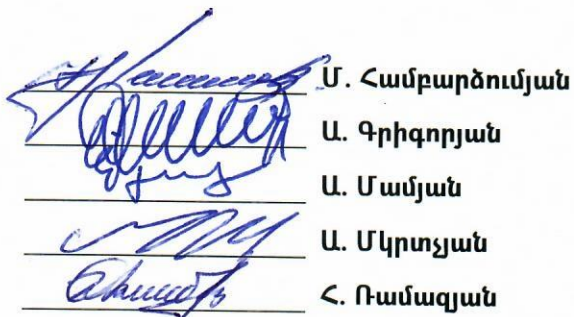 Մ. Համբարձումյան
Ա. Գրիգորյան
Ա. Մամյան
Ա. Մկրտչյան
Հ. Ռամազյան